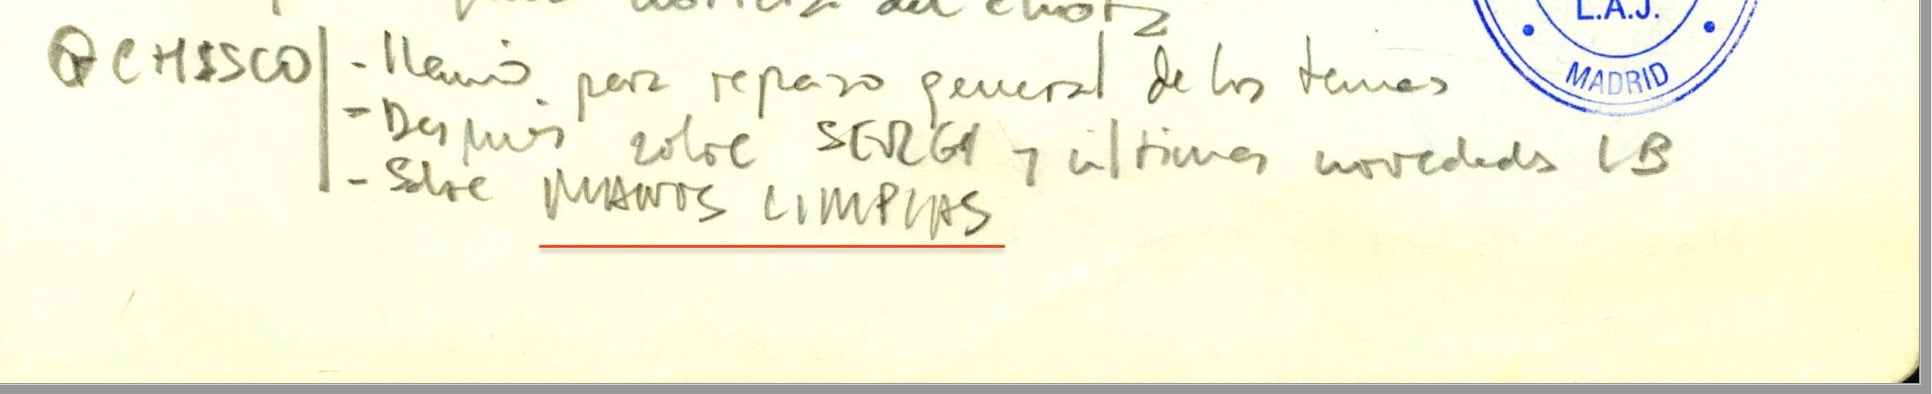 noticia del chota
CHISSCO - llamó para repaso general de los temas
- Después sobre SERGI y últimas novedades LB
- Sobre MANOS LIMPIAS
L.A.J.
MADRID